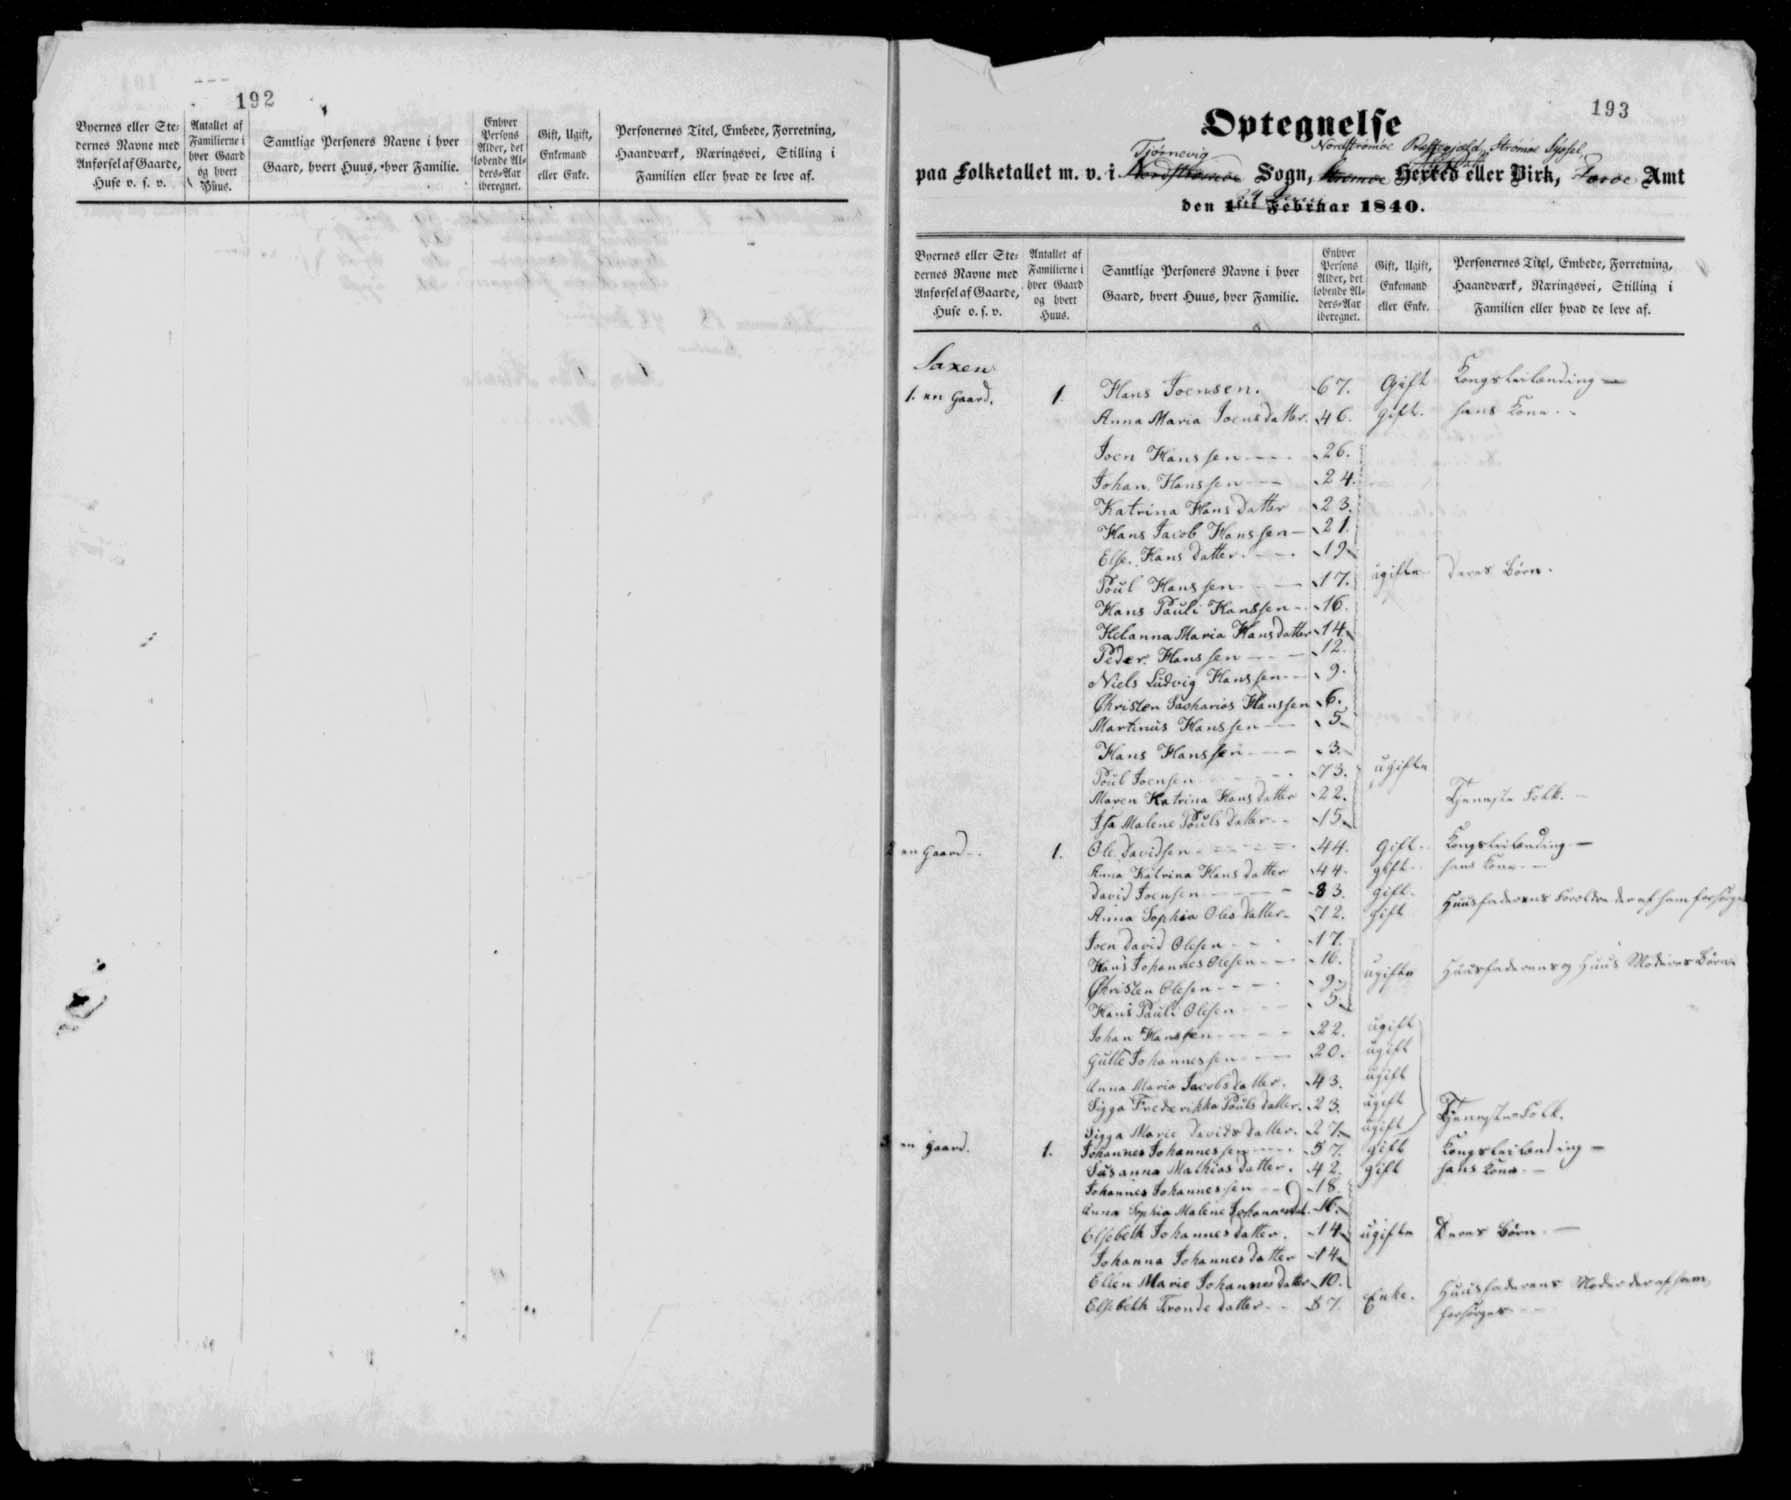 192
Byernes eller Ste-
dernes Navne med
Anførsel af Gaarde,
Huse o. s. v.
Antallet af
Familierne i
hver Gaard
og hvert
Huus.
Samtlige Personers Navne i hver
Gaard, hvert Huus, hver Familie.
Enhver
Persons
Alder, det
løbende Al-
ders-Aar
iberegnet.
Gift, Ugift,
Enkemand
eller Enke.
Personernes Titel, Embede, Forretning,
Haandværk, Næringsvei, Stilling i
Familien eller hvad de leve af.
193
Optegnelse
Tjörnevig Nordströmöe Præstegjæld, Strömöe Syssel
paa Folketallet m. v. i Nordströmöe Sogn, Strömöe Herred eller Birk, Færöe Amt
den 1ste Februar 1840.
Byernes eller Ste-
dernes Navne med
Anførsel af Gaarde,
Huse o. s. v.
Antallet af
Familierne i
hver Gaard
og hvert
Huus.
Samtlige Personers Navne i hver
Gaard, hvert Huus, hver Familie.
Enhver
Persons
Alder, det
løbende Al-
ders-Aar
iberegnet.
Gift, Ugift,
Enkemand
eller Enke.
Personernes Titel, Embede, Forretning,
Haandværk, Næringsvei, Stilling i
Familien eller hvad de leve af.
Saxen
1. en Gaard. 1. Hans Joensen. 67. Gift Kongsleilending
Anna Maria Joensdatter. 46. gift. hans Kone
Joen Hanssen 26.
Johan Hanssen 24.
Katrina Hansdatter 23.
Hans Jacob Hanssen 21.
Else Hansdatter 19
Poul Hanssen 17. ugifte deres Børn.
Hans Pauli Hanssen 16.
Helanna Maria Hansdatter 14
Peder Hanssen 12.
Niels Ludvig Hanssen 9.
Christen Sacharias Hanssen 6.
Martinus Hanssen 5
Hans Hanssen 3.
Poul Joensen 73. ugifte
Maren Katrina Hansdatter 22. Tjeneste Folk.
Isa Malene Poulsdatter 15
2 en Gaard 1. Ole Davidsen 44. gift Kongsleilending
Anna Katrina Hansdatter 44 gift hans Kone
David Joensen 83. gift
Anna Sophia Olesdatter 72. gift Huusfaderens Forældre der af ham forsørges
Joen David Olesen 17.
Hans Johannes Olesen 16. ugifte Huusfaderens og Huus Moderens Børn
Christen Olesen 9
Hans Pauli Olesen 5
Johan Hanssen 22. ugift
Gutte Johannessen 20. ugift
Anna Maria Jacobsdatter. 43. ugift
Sigga Frederikka Poulsdatter. 23. ugift Tjeneste Folk.
Sigga Marie Davidsdatter. 27. ugift
3 en Gaard. 1. Johannes Johannessen 57. gift Kongsleilending
Susanna Mathiasdatter. 42. gift hans Kone
Johannes Johannessen 18.
Anna Sophia Malene Johannesd. 16.
Elsebeth Johannesdatter. 14 ugifte Deres Børn
Johanna Johannesdatter 14
Ellen Marie Johannesdatter 10.
Elsebeth Trondsdatter 87. Enke. Huusfaderens Moder der af ham
forsørges